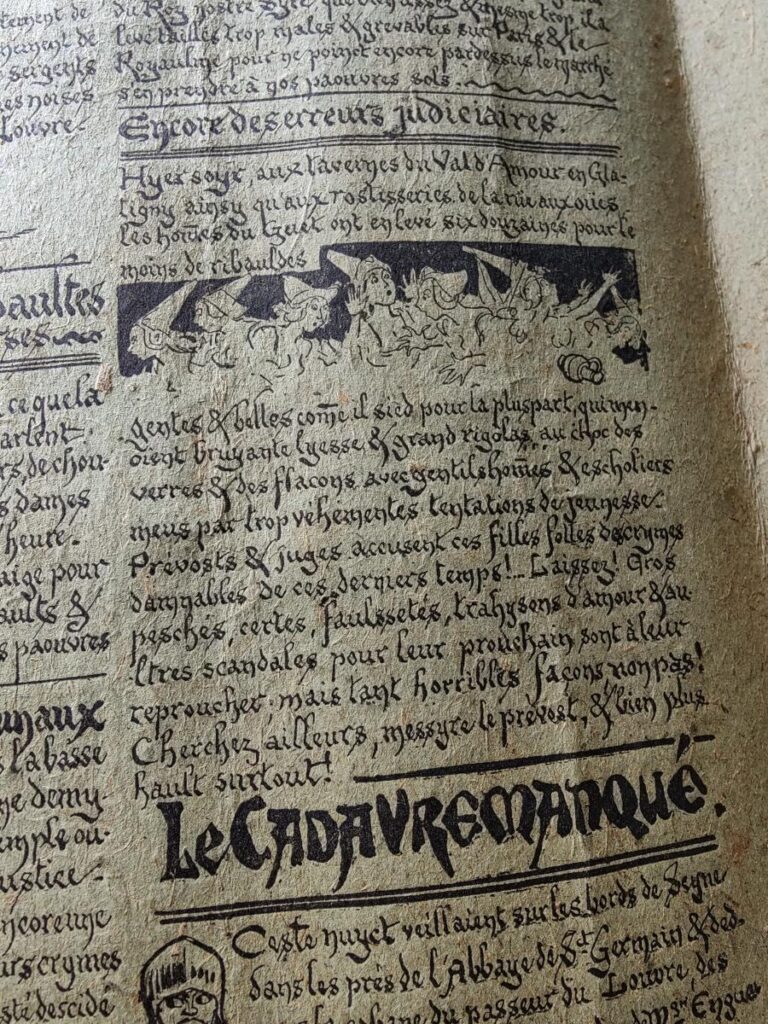 tement de
nement de
sergents
es noises
Louvre.
aultes
ses
ce que la
arlent.
rs, de chou-
s dames
heure.
aige pour
aults &
s paouvres
unaux
s la basse
ne demy-
emple ou-
ustice
ncore une
urs crymes
sté descidé
du Roy nostre Syre, que
levé tailles trop males & grevables sur Paris & le
Royaulme pour ne poinct encore pardessus le marché
s'en prendre à nos paouvres sols.
Encore des erreurs judiciaires.
Hyer soyr, aux tavernes du Val d'Amour en Gla-
tigny ainsy qu'aux rostisseries de la rüe aux oües
les hom̃es du Guet ont enlevé six douzaines pour le
moins de ribauldes
gentes & belles com̃e il sied pour la pluspart, qui men-
oient bruyante lyesse & grand rigolas, au choc des
verres & des flacons avec gentilshom̃es & escholiers
meus par trop véhementes tentations de jeunesse.
Prévosts & juges accusent ces filles folles des crymes
damnables de ces derniers temps!... Laissez! Gros
peschés, certes, faulssetés, trahysons d'amour & au-
ltres scandales pour leur prouchain sont à leur
reproucher, mais tant horribles façons non pas!
Cherchez ailleurs, messyre le prévost, & bien plus
hault surtout!
Le CADAVRE MANQUÉ.
Ceste nuyct veillaient sur les bords de Seyne
dans les près de l'Abbaye de St Germain & ded-
du passeur du Louvre, des